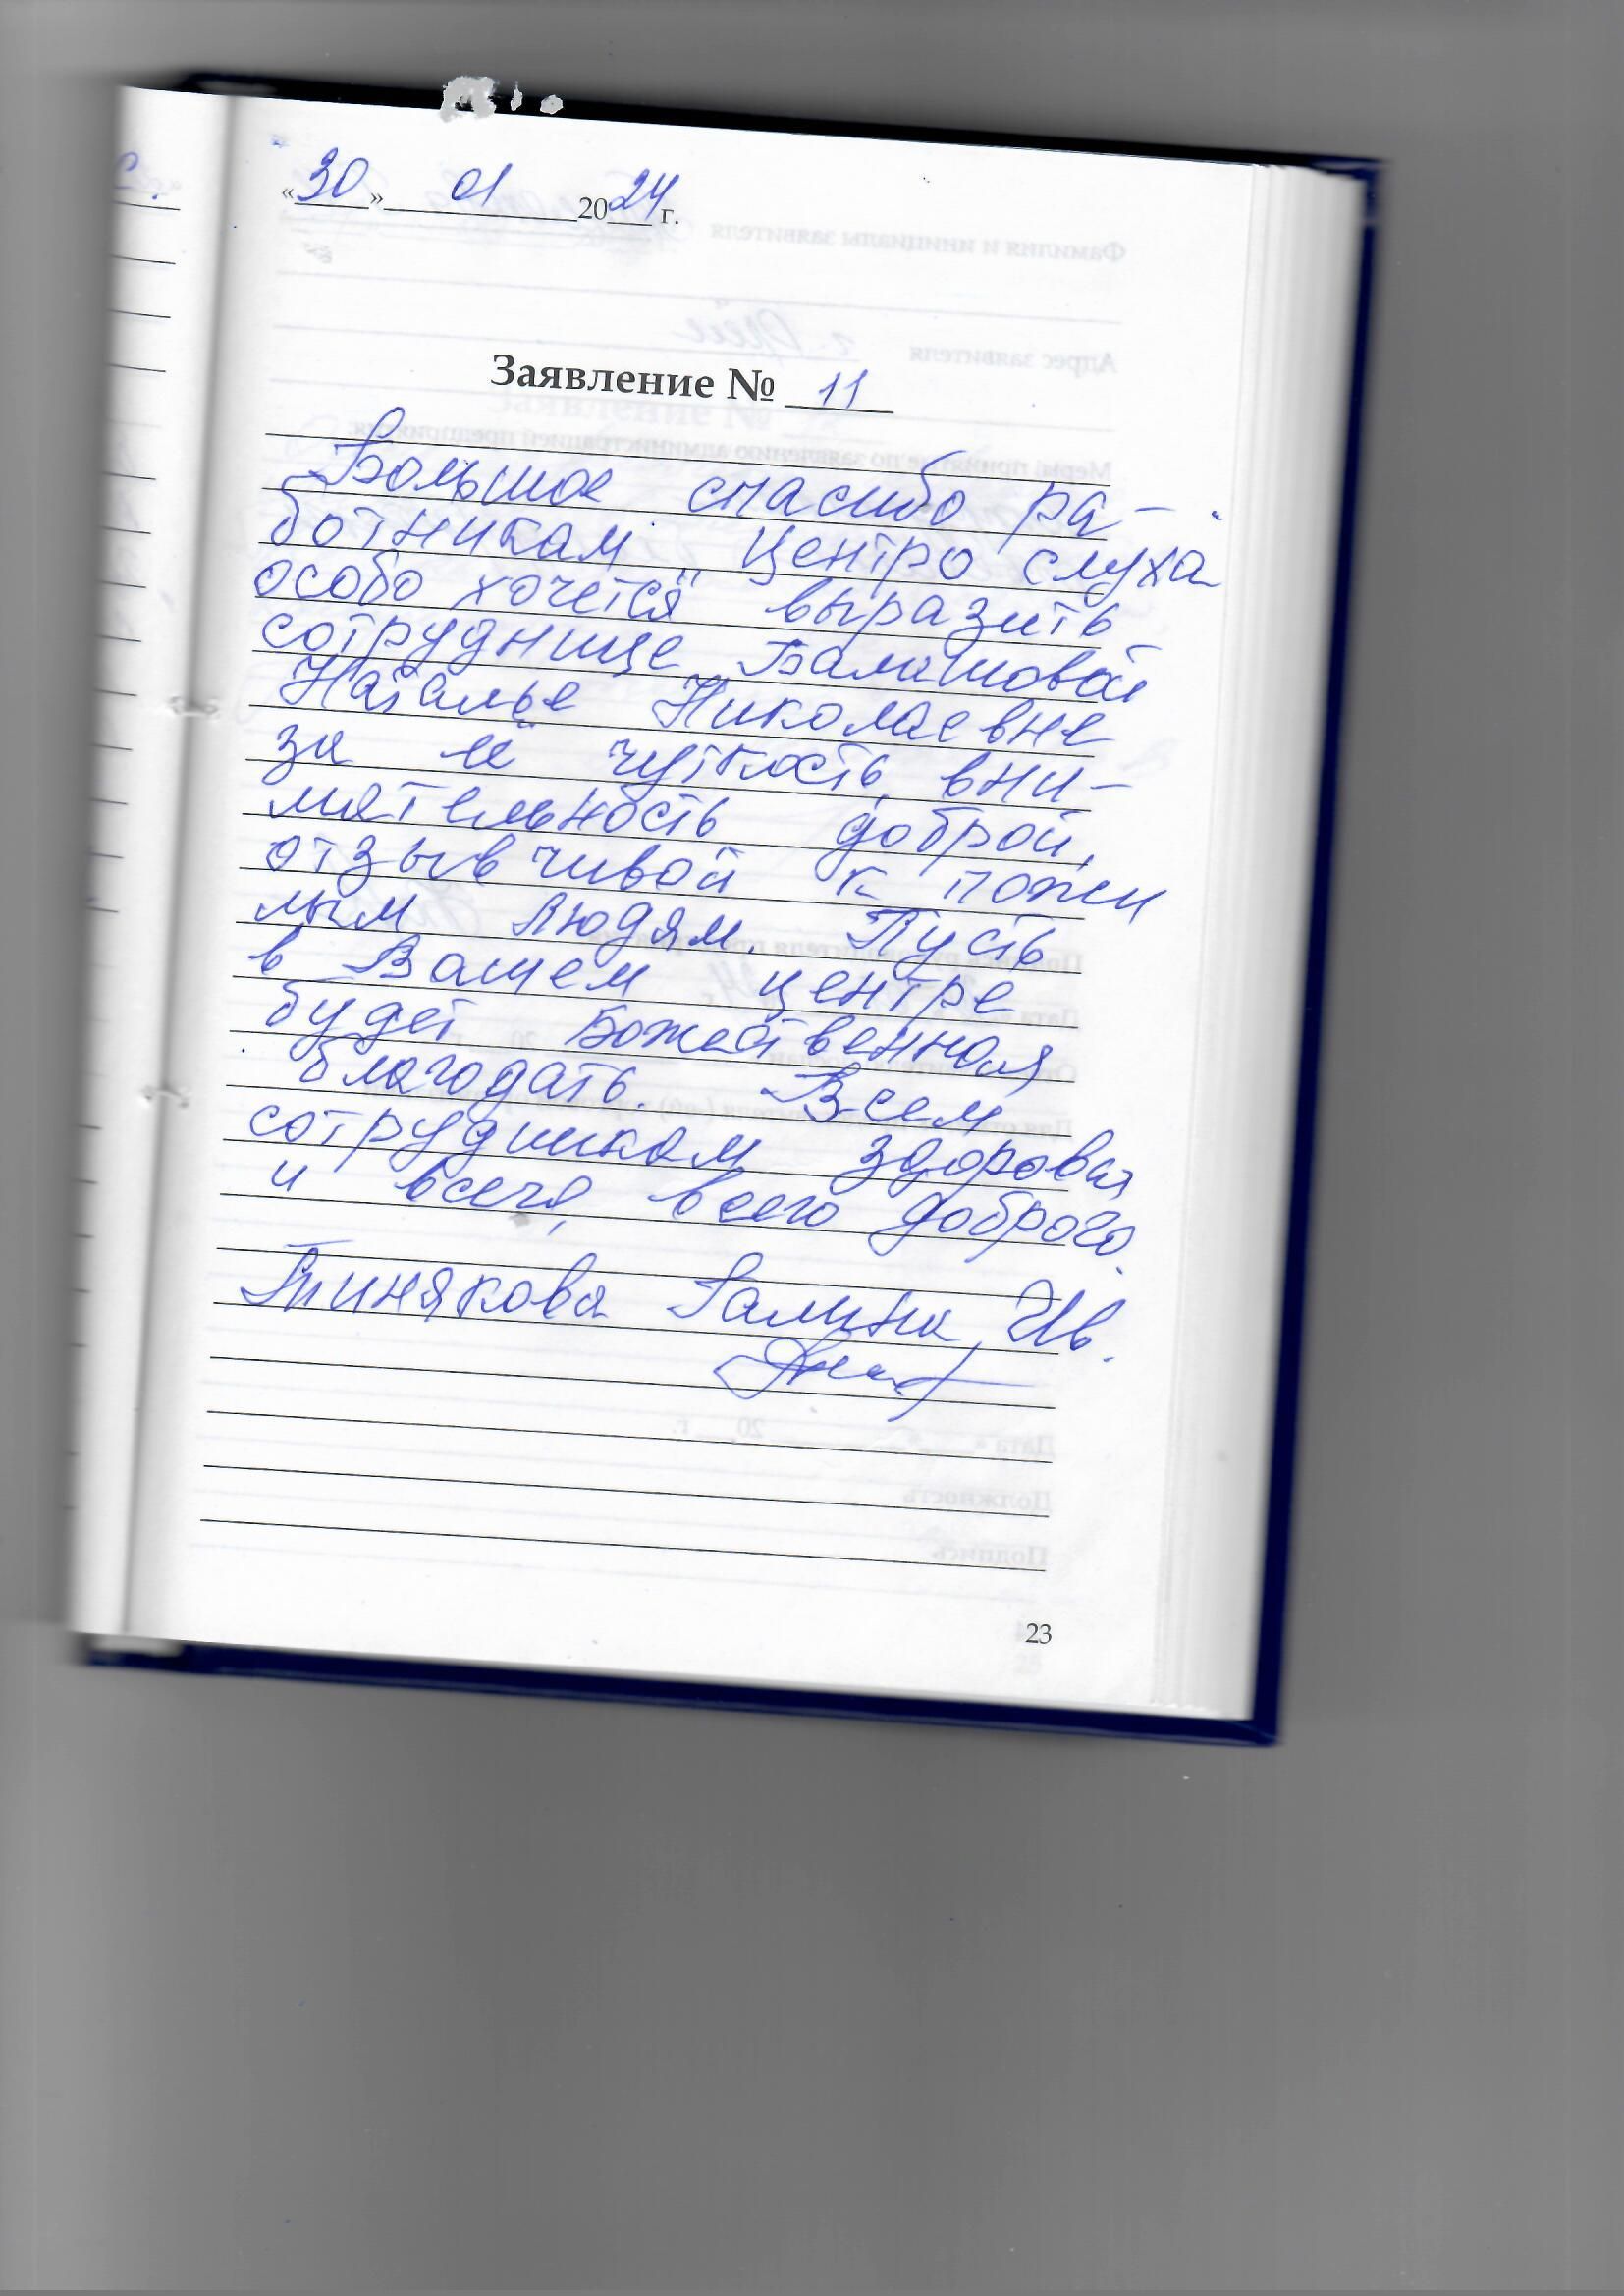 «30» 01 2024 г.
Заявление № 11
Большое спасибо ра-
ботникам „Центро слуха"
особо хочется выразить
сотруднице Балашовой
Наталье Николаевне
за её чуткость, вни-
мательность доброй,
отзывчивой к пожи
лым людям. Пусть
в Вашем центре
будет Божественная
благодать. Всем
сотрудникам здоровья
и всего, всего доброго.
Тинякова Галина Ив.
23